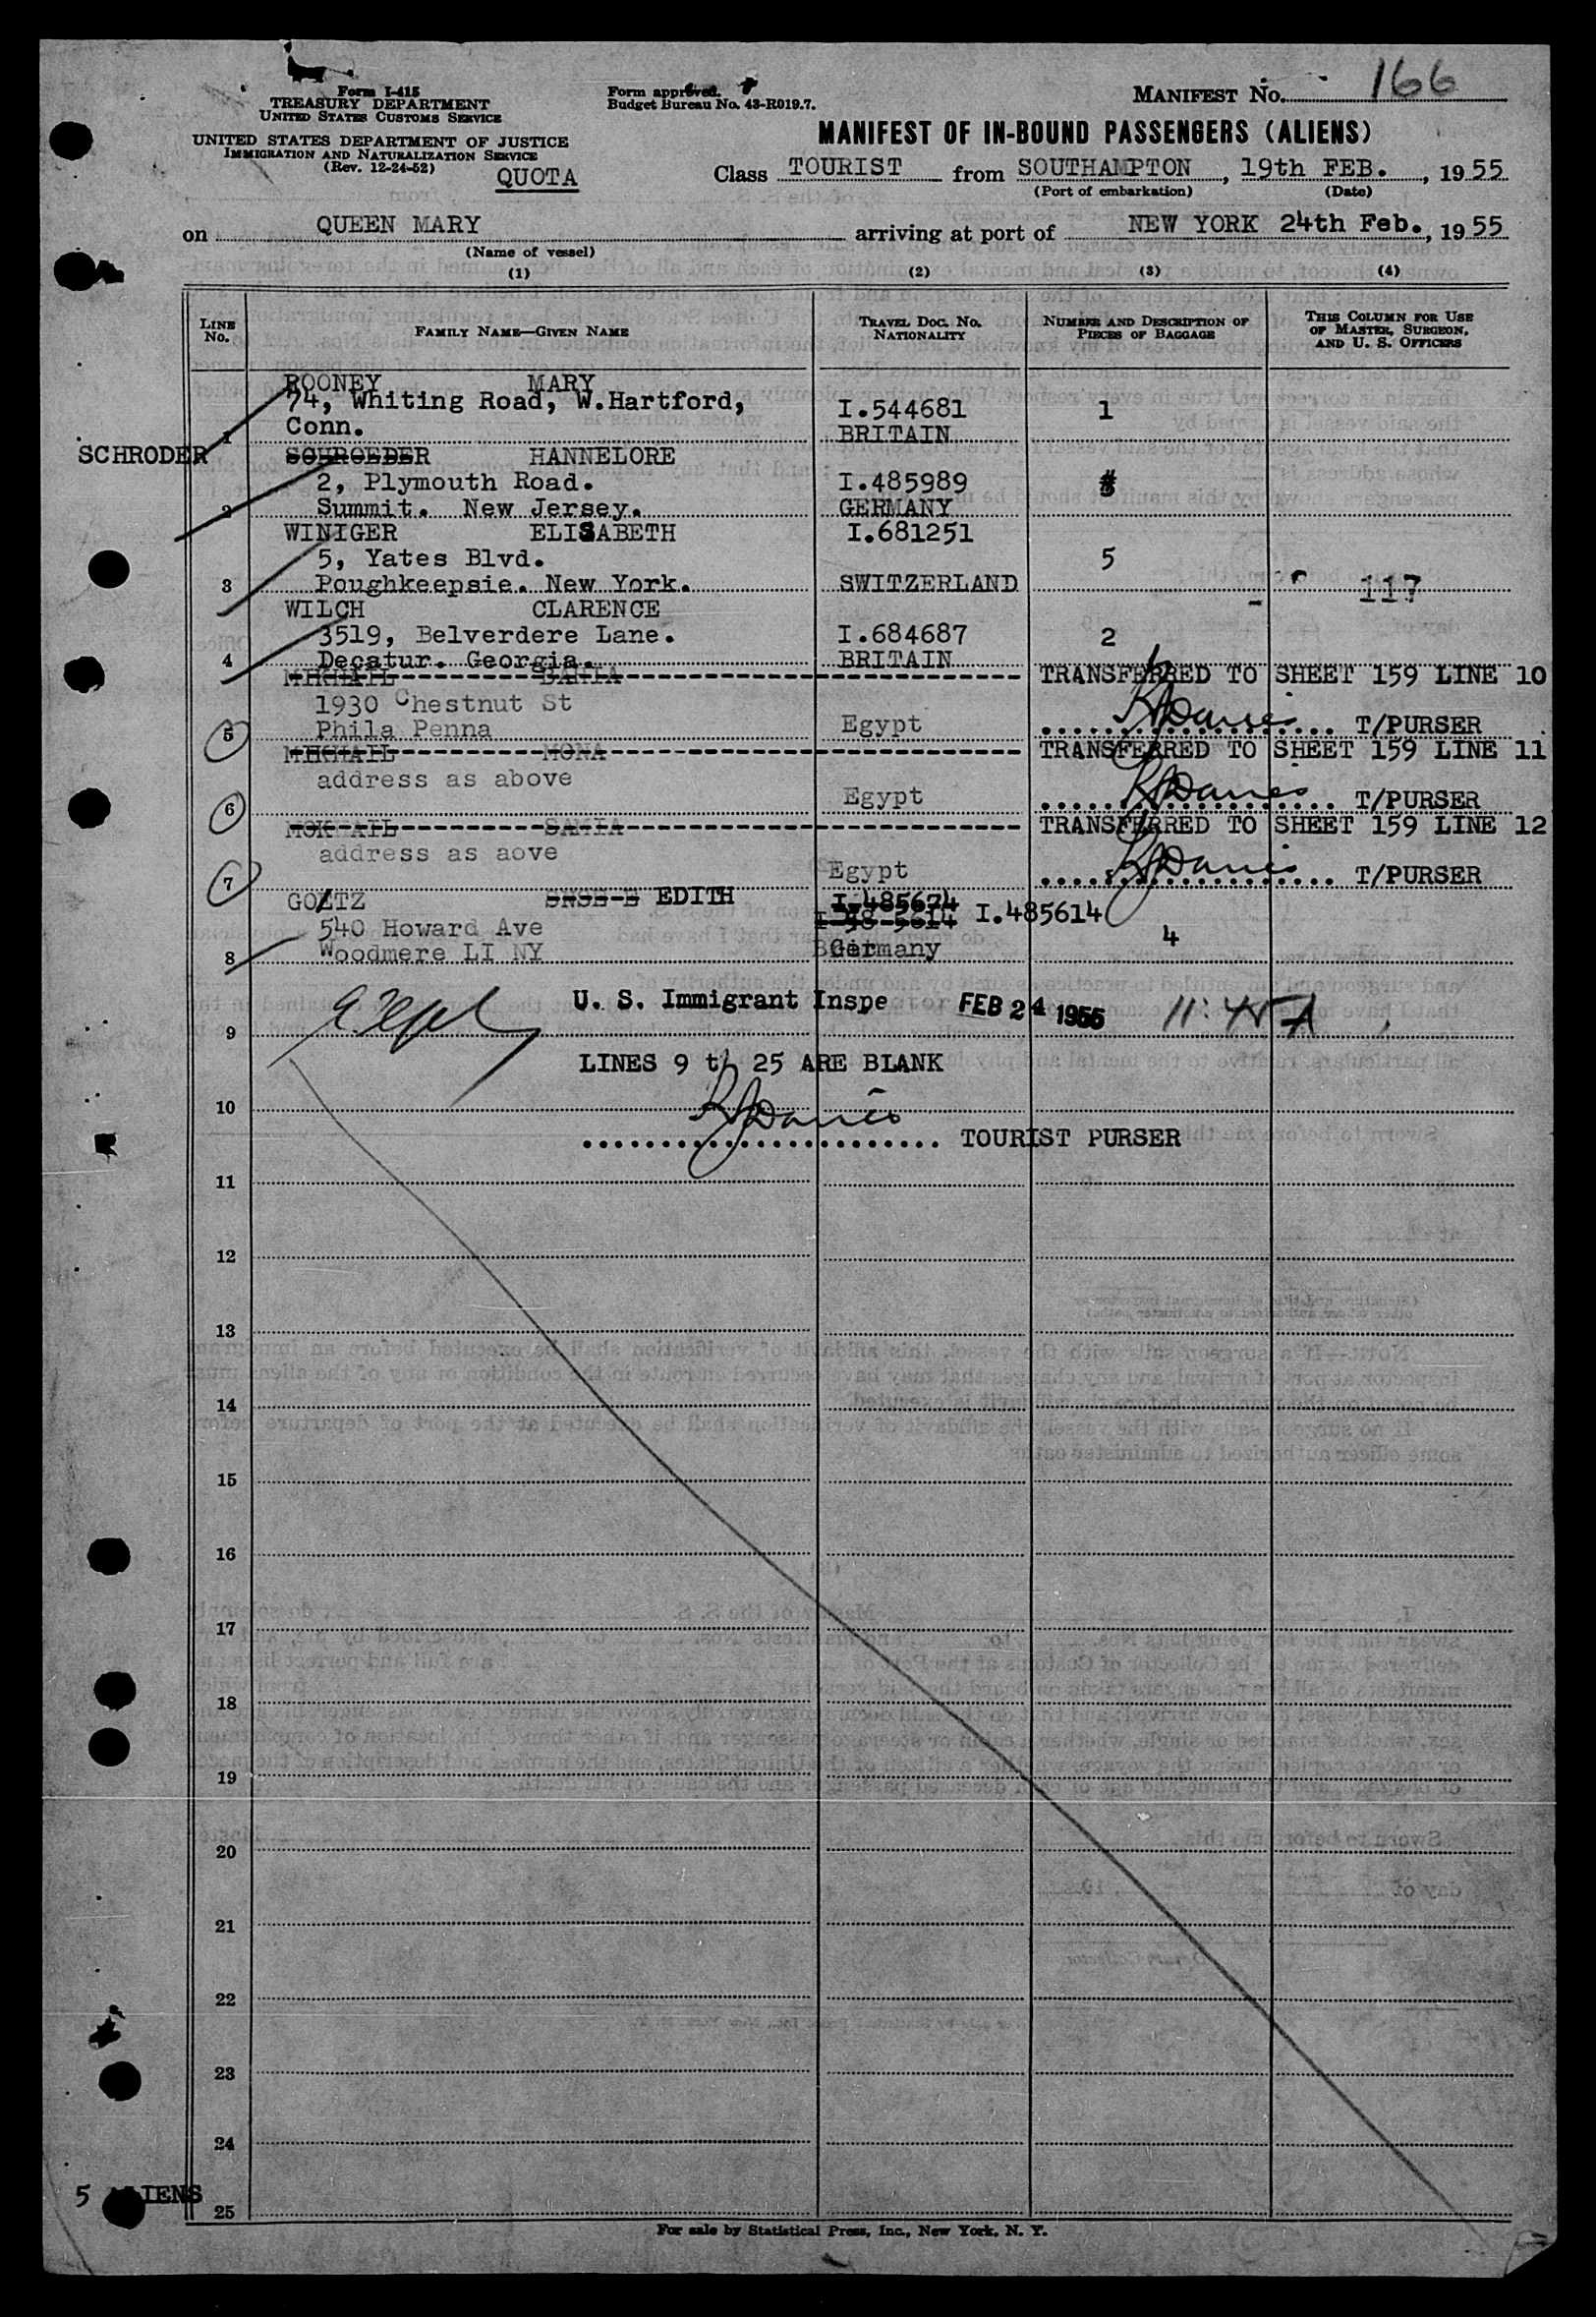 Form I-415
TREASURY DEPARTMENT
UNITED STATES CUSTOMS SERVICE
UNITED STATES DEPARTMENT OF JUSTICE
IMMIGRATION AND NATURALIZATION SERVICE
(Rev. 12-24-52)
QUOTA
Form approved.
Budget Bureau No. 43-R019.7.
MANIFEST No. 166
MANIFEST OF IN-BOUND PASSENGERS (ALIENS)
Class TOURIST from SOUTHAMPTON, 19th FEB., 1955
(Port of embarkation) (Date)
on QUEEN MARY arriving at port of NEW YORK 24th Feb., 1955
(Name of vessel)
(1) (2) (3) (4)
LINE No. FAMILY NAME—GIVEN NAME TRAVEL DOC. No. NATIONALITY NUMBER AND DESCRIPTION OF PIECES OF BAGGAGE THIS COLUMN FOR USE OF MASTER, SURGEON, AND U. S. OFFICERS
ROONEY MARY
74, Whiting Road, W.Hartford, I.544681 1
1 Conn. BRITAIN
SCHRODER SCHROEDER HANNELORE
2, Plymouth Road. I.485989
2 Summit. New Jersey. GERMANY
WINIGER ELISABETH I.681251
5, Yates Blvd. 5
3 Poughkeepsie. New York. SWITZERLAND 117
WILCH CLARENCE
3519, Belverdere Lane. I.684687 2
4 Decatur. Georgia. BRITAIN
MIKHAIL TRANSFERRED TO SHEET 159 LINE 10
1930 Chestnut St
5 Phila Penna Egypt T/PURSER
MIKHAIL MONA TRANSFERRED TO SHEET 159 LINE 11
address as above
6 Egypt T/PURSER
SAMIA TRANSFERRED TO SHEET 159 LINE 12
address as aove
7 Egypt T/PURSER
GOETZ EDITH I.485674
540 Howard Ave I.485614 4
8 Woodmere LI NY Germany
U. S. Immigrant Inspector FEB 24 1955 11:45 A
9
LINES 9 to 25 ARE BLANK
10
TOURIST PURSER
11
12
13
14
15
16
17
18
19
20
21
22
23
24
5 ALIENS
25
For sale by Statistical Press, Inc., New York, N. Y.